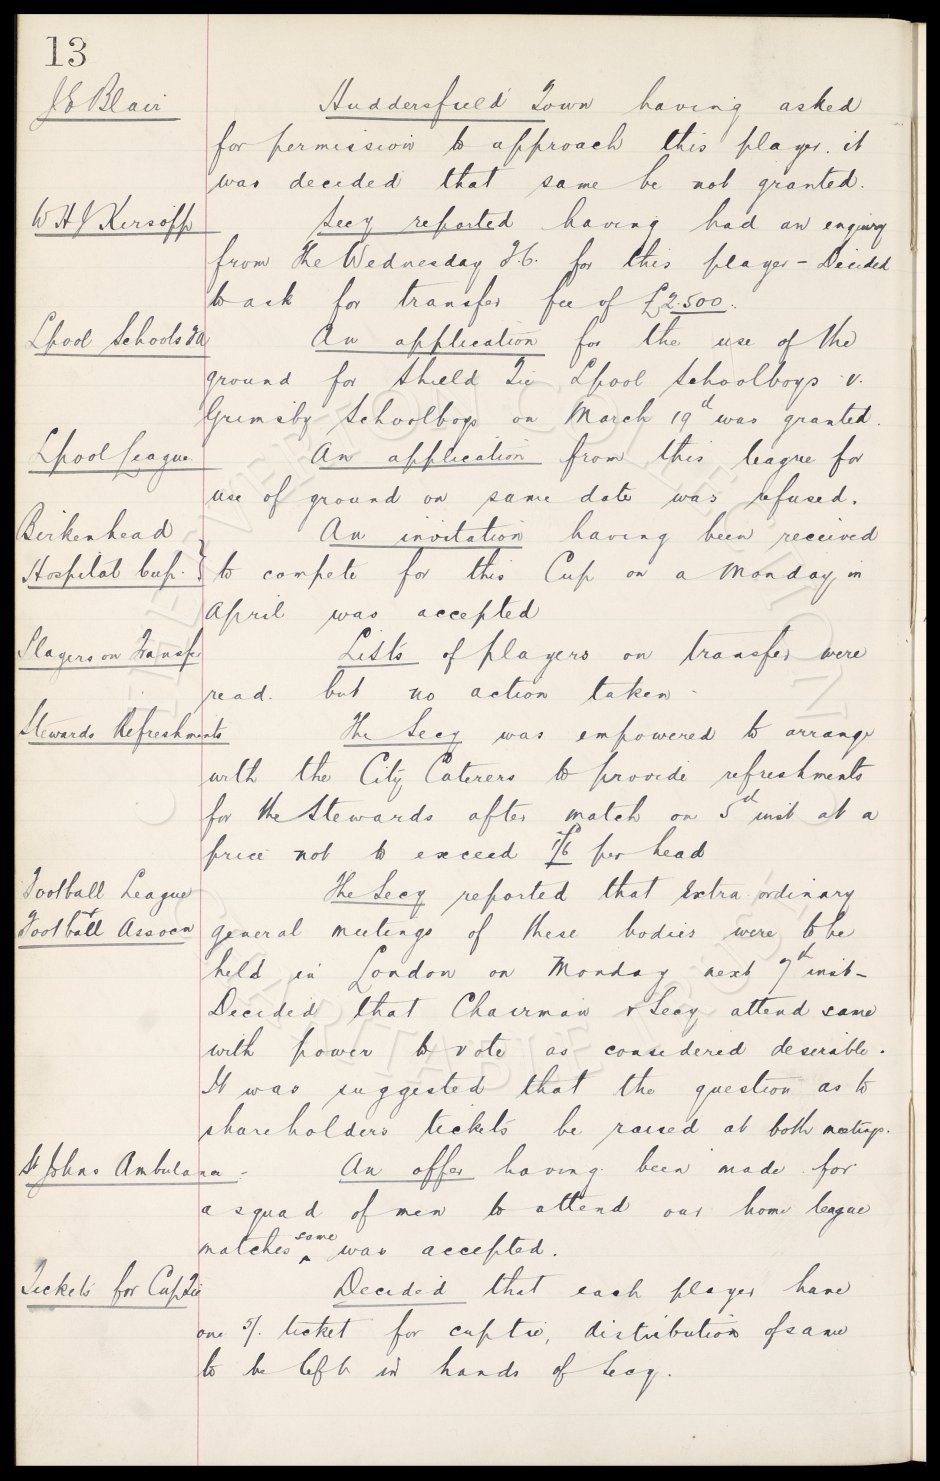 13
J E Blair
Huddersfield Town having asked
for permission to approach this player. it
was decided that same be not granted.
W H J Kirsopp
Secy reported having had an enquiry
from The Wednesday F.C. for this player - Decided
to ask for transfer fee of £2.500.
Lpool Schools FA
An application for the use of the
ground for Shield Tie Lpool Schoolboys v.
Grimsby Schoolboys on March 19th was granted.
Lpool League.
An application from this league for
use of ground on same date was refused.
Birkenhead
Hospital Cup.
An invitation having been received
to compete for this Cup on a Monday in
April was accepted
Players on Transfer
Lists of players on transfer were
read. but no action taken -
Stewards Refreshments
The Secy was empowered to arrange
with the City Caterers to provide refreshments
for the Stewards after match on 5th inst at a
price not to exceed 7/6 per head
Football League
+
Football Assocn
The Secy reported that Extra ordinary
general meetings of these bodies were to be
held in London on Monday next 7th inst -
Decided that Chairman & Secy attend same
with power to vote as considered desirable.
It was suggested that the question as to
shareholders tickets be raised at both meetings.
St Johns Ambulance -
An offer having been made for
a squad of men to attend our home league
matches same was accepted.
Tickets for Cup Tie
Decided that each player have
one 5/. ticket for cup tie, distribution of same
to be left in hands of Secy.